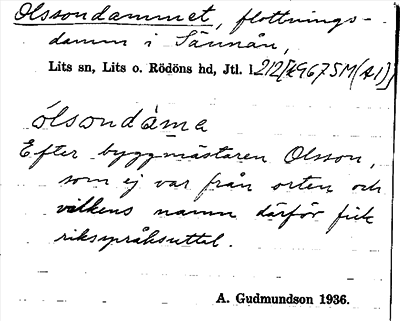 Olssondammet, flottnings-
damm i Sännån,
Lits sn, Lits o. Rödöns hd, Jtl.
ólsondàma
Efter byggmästaren Olsson,
som ej var från orten och
vilkens namn därför fick
riksspråksuttal.
A. Gudmundson 1936.